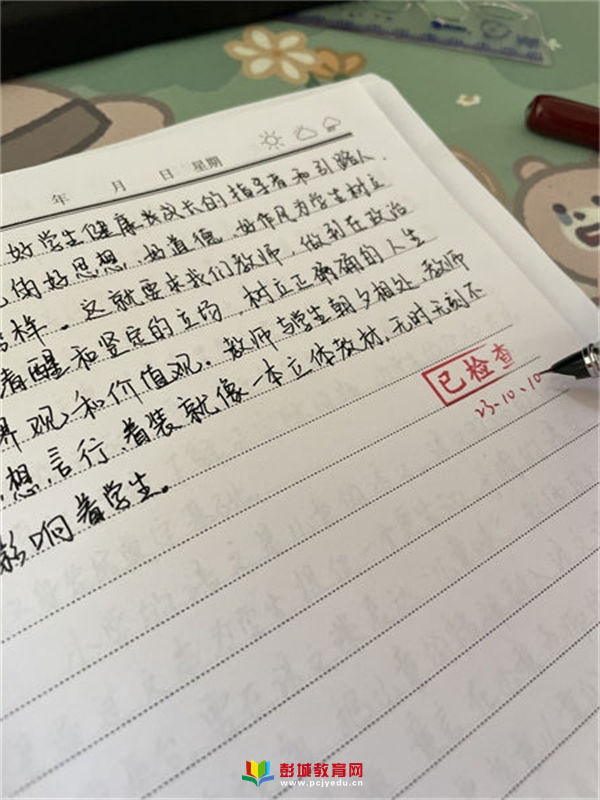 年 月 日 星期
好学生健康成长的指导者和引路人,
的好思想、好道德、好作风为学生树立
榜样。这就要求我们教师,做到在政治
清醒和坚定的立场,树立正确的人生
界观和价值观。教师与学生朝夕相处,教师
想,言行,着装就像一本立体教材,无时无刻不
影响着学生。
已检查
23.10.10
彭城教育网
www.pcjyedu.cn